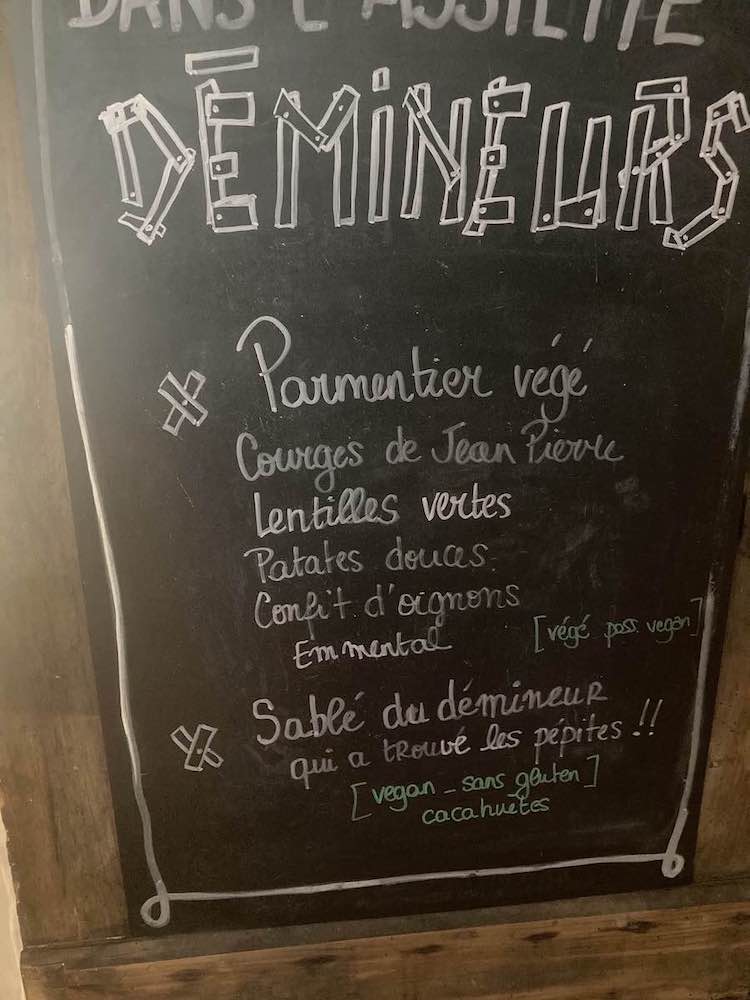 DANS L'ASSIETTE
DÉMINEURS
Parmentier végé
Courges de Jean Pierre
Lentilles vertes
Patates douces.
Confit d'oignons
Emmental
[végé poss. vegan]
Sablé du démineur
qui a trouvé les pépites !!
[vegan _ sans gluten]
cacahuètes